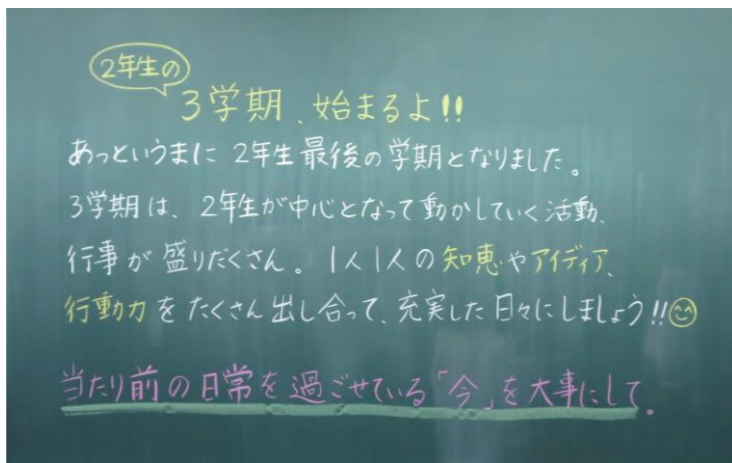 2年生の
3学期、始まるよ!!
あっというまに2年生最後の学期となりました。
3学期は、2年生が中心となって動かしていく活動、
行事が盛りだくさん。1人1人の知恵やアイディア、
行動力をたくさん出し合って、充実した日々にしましょう!!
当たり前の日常を過ごせている「今」を大事にして。